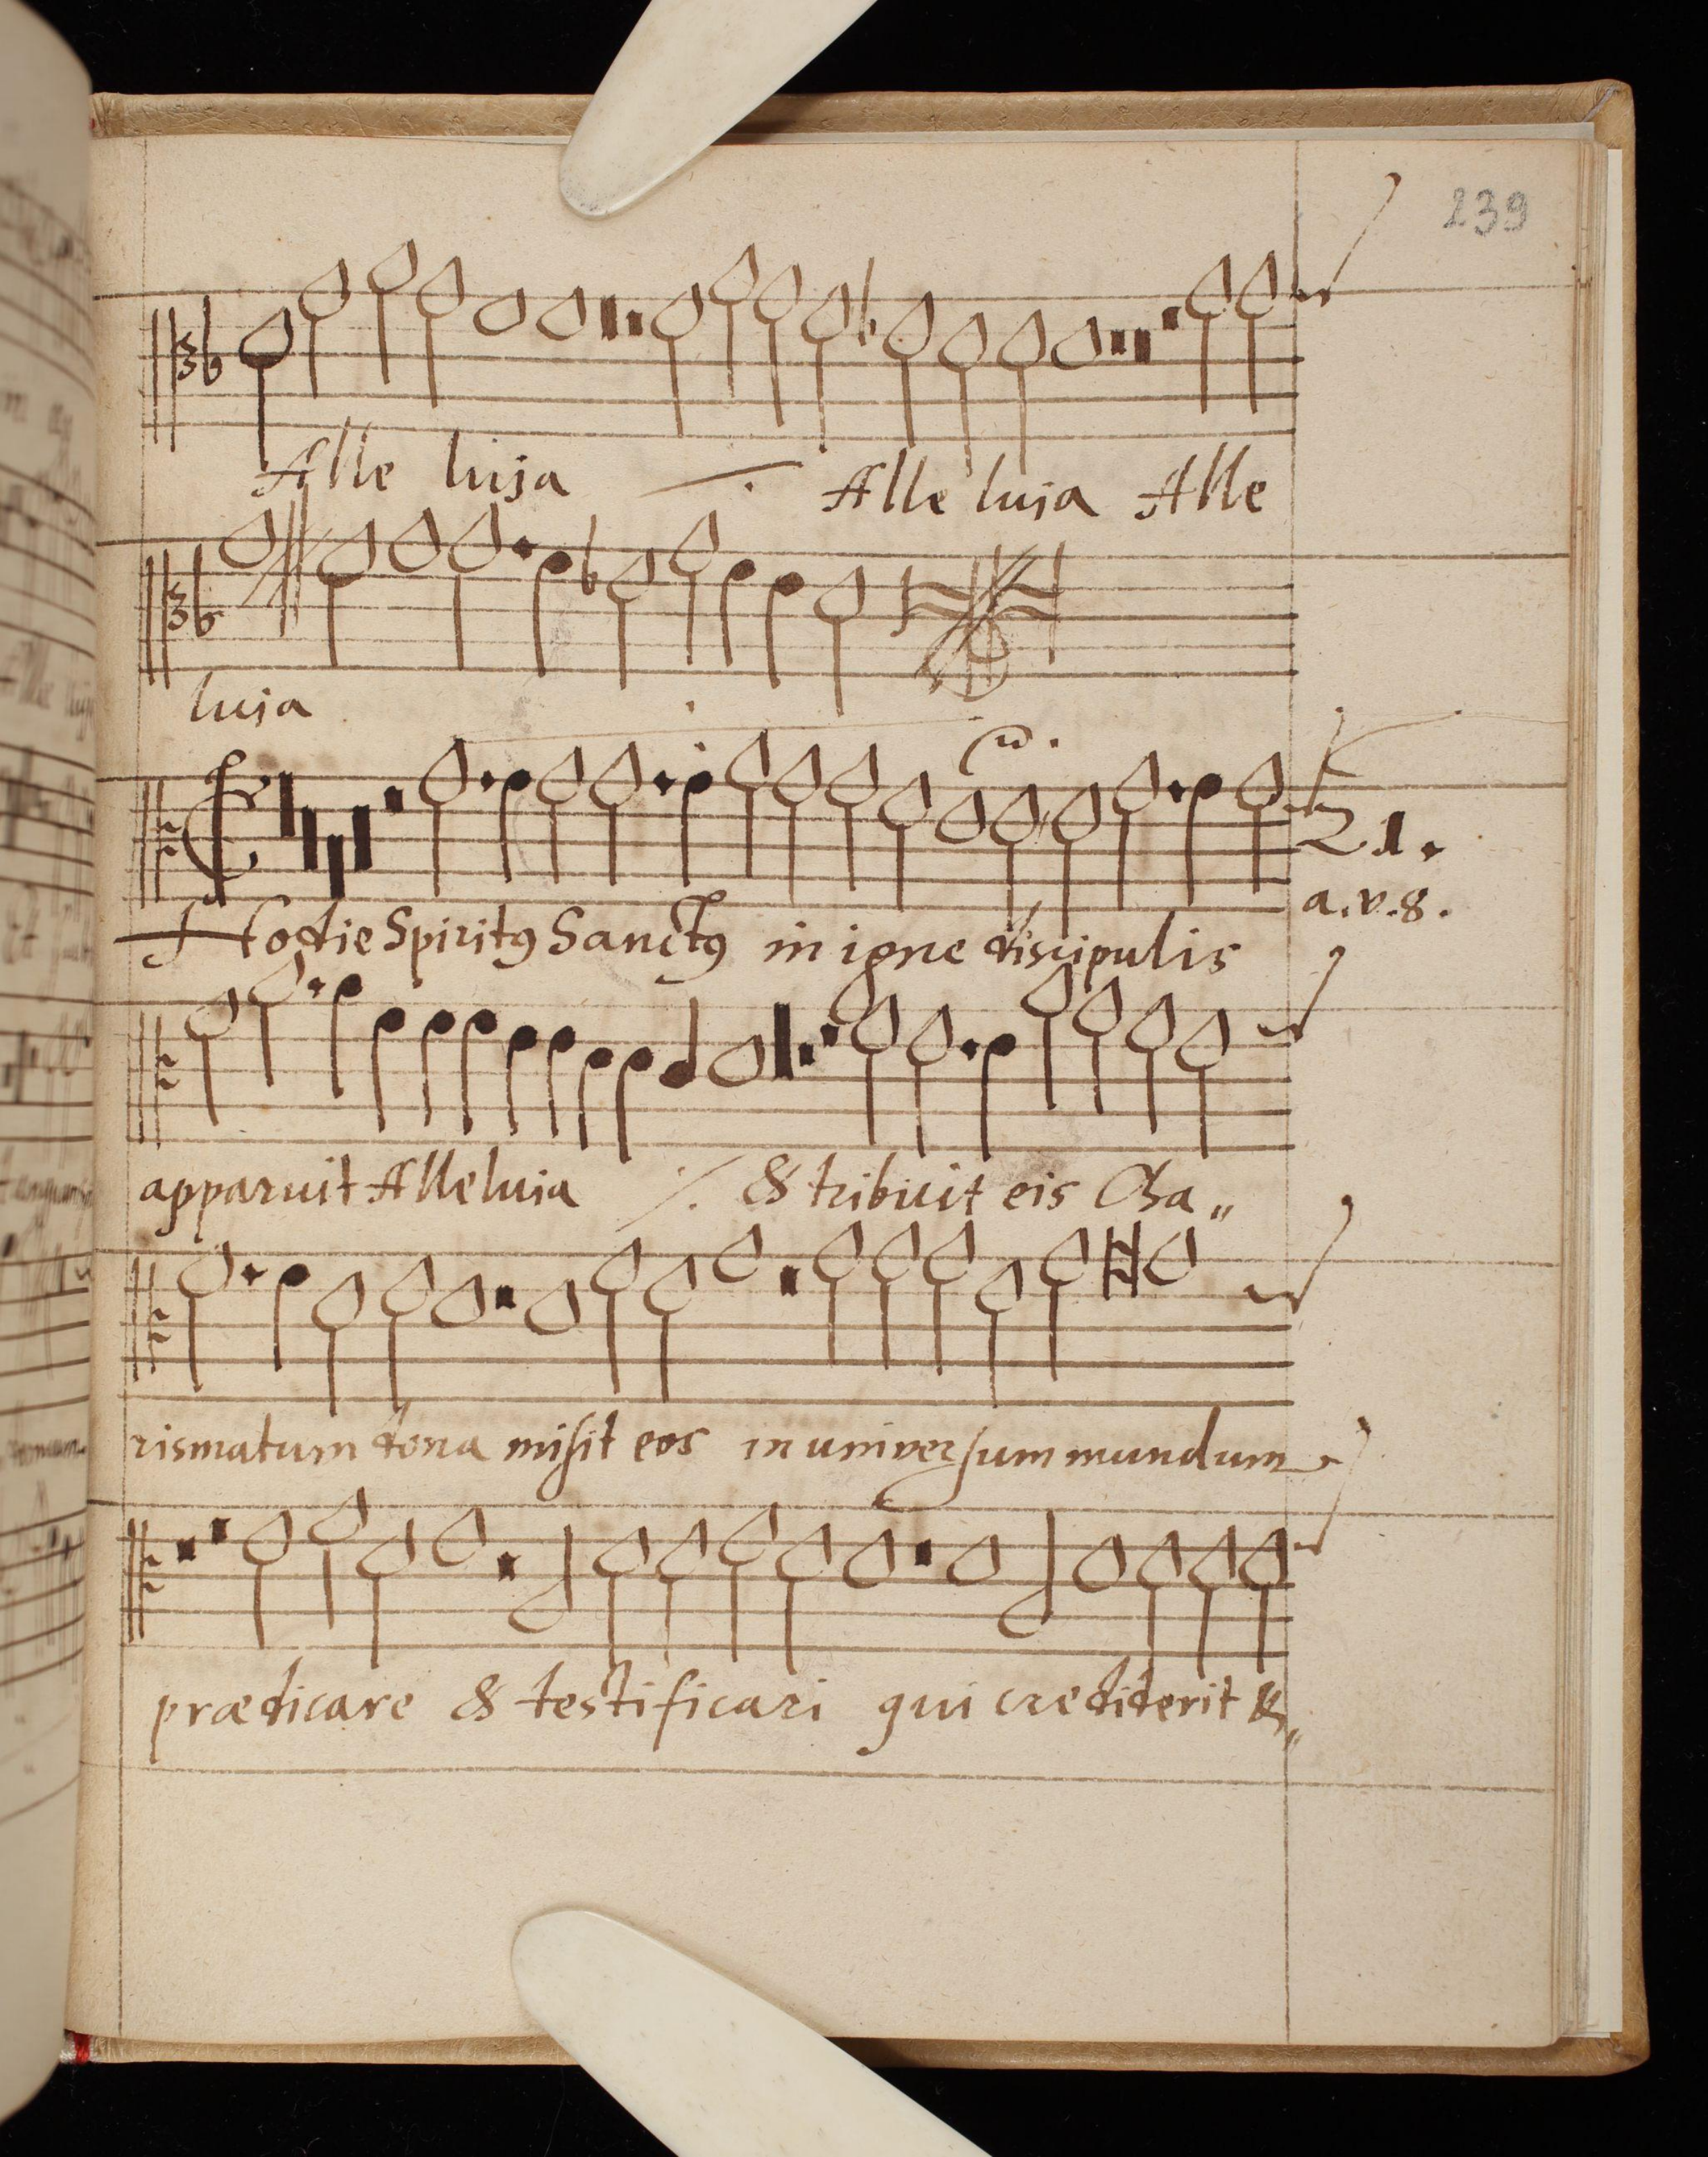 239
Alle luja Alle luja Alle
luja
21.
a.v.8.
Hodie Spiritꝰ Sanctꝰ in igne discipulis
apparuit Alleluia ⁒ & tribuit eis Cha„
rismatum dona misit eos in universum mundum
prædicare & testificari qui crediderit &„